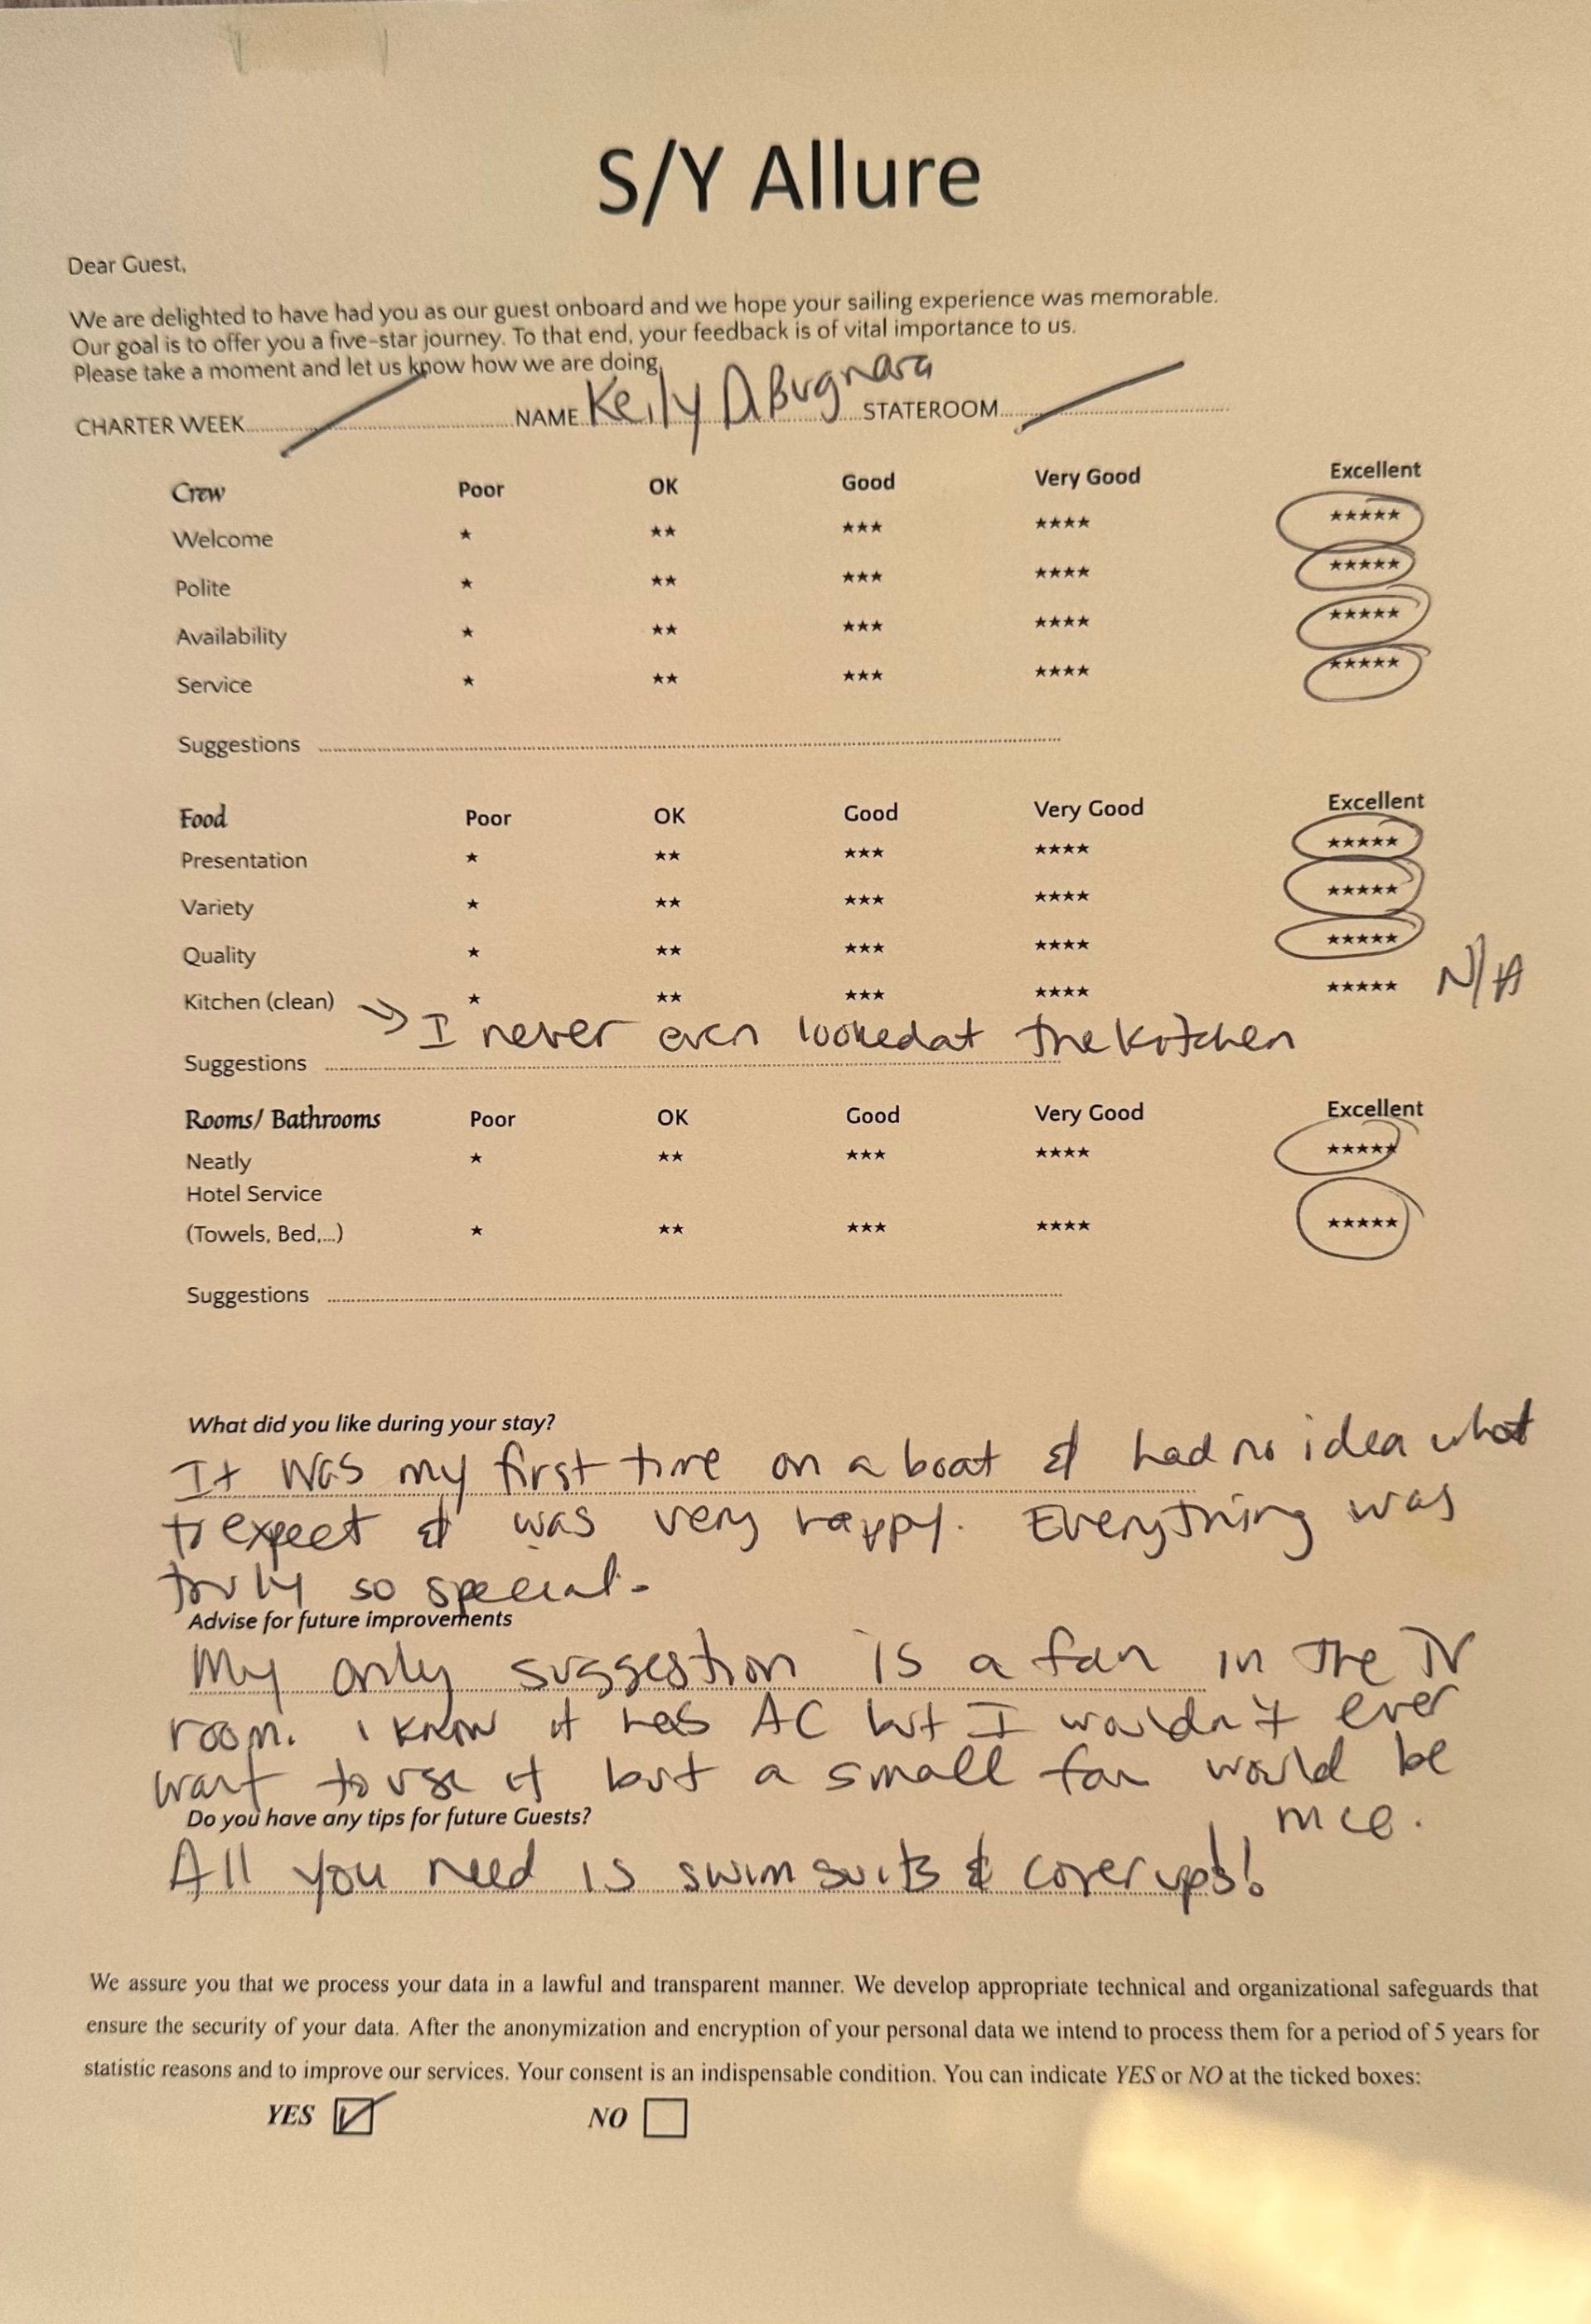 S/Y Allure
Dear Guest,
We are delighted to have had you as our guest onboard and we hope your sailing experience was memorable.
Our goal is to offer you a five-star journey. To that end, your feedback is of vital importance to us.
Please take a moment and let us know how we are doing.
CHARTER WEEK NAME STATEROOM
Crew Poor OK Good Very Good Excellent
Welcome ★ ★★ ★★★ ★★★★ ★★★★★
Polite ★ ★★ ★★★ ★★★★ ★★★★★
Availability ★ ★★ ★★★ ★★★★ ★★★★★
Service ★ ★★ ★★★ ★★★★ ★★★★★
Suggestions
Food Poor OK Good Very Good Excellent
Presentation ★ ★★ ★★★ ★★★★ ★★★★★
Variety ★ ★★ ★★★ ★★★★ ★★★★★
Quality ★ ★★ ★★★ ★★★★ ★★★★★
Kitchen (clean) ★ ★★ ★★★ ★★★★ ★★★★★ N/A
I never even looked at the kitchen
Suggestions
Rooms/ Bathrooms Poor OK Good Very Good Excellent
Neatly ★ ★★ ★★★ ★★★★ ★★★★★
Hotel Service
(Towels, Bed,...) ★ ★★ ★★★ ★★★★ ★★★★★
Suggestions
What did you like during your stay?
It was my first time on a boat & had no idea what
to expect & was very happy. Everything was
truly so special.
Advise for future improvements
My only suggestion is a fan in the TV
room. I know it has AC but I wouldn't ever
want to use it but a small fan would be
nice.
Do you have any tips for future Guests?
All you need is swimsuits & coverups!
We assure you that we process your data in a lawful and transparent manner. We develop appropriate technical and organizational safeguards that
ensure the security of your data. After the anonymization and encryption of your personal data we intend to process them for a period of 5 years for
statistic reasons and to improve our services. Your consent is an indispensable condition. You can indicate YES or NO at the ticked boxes:
YES NO